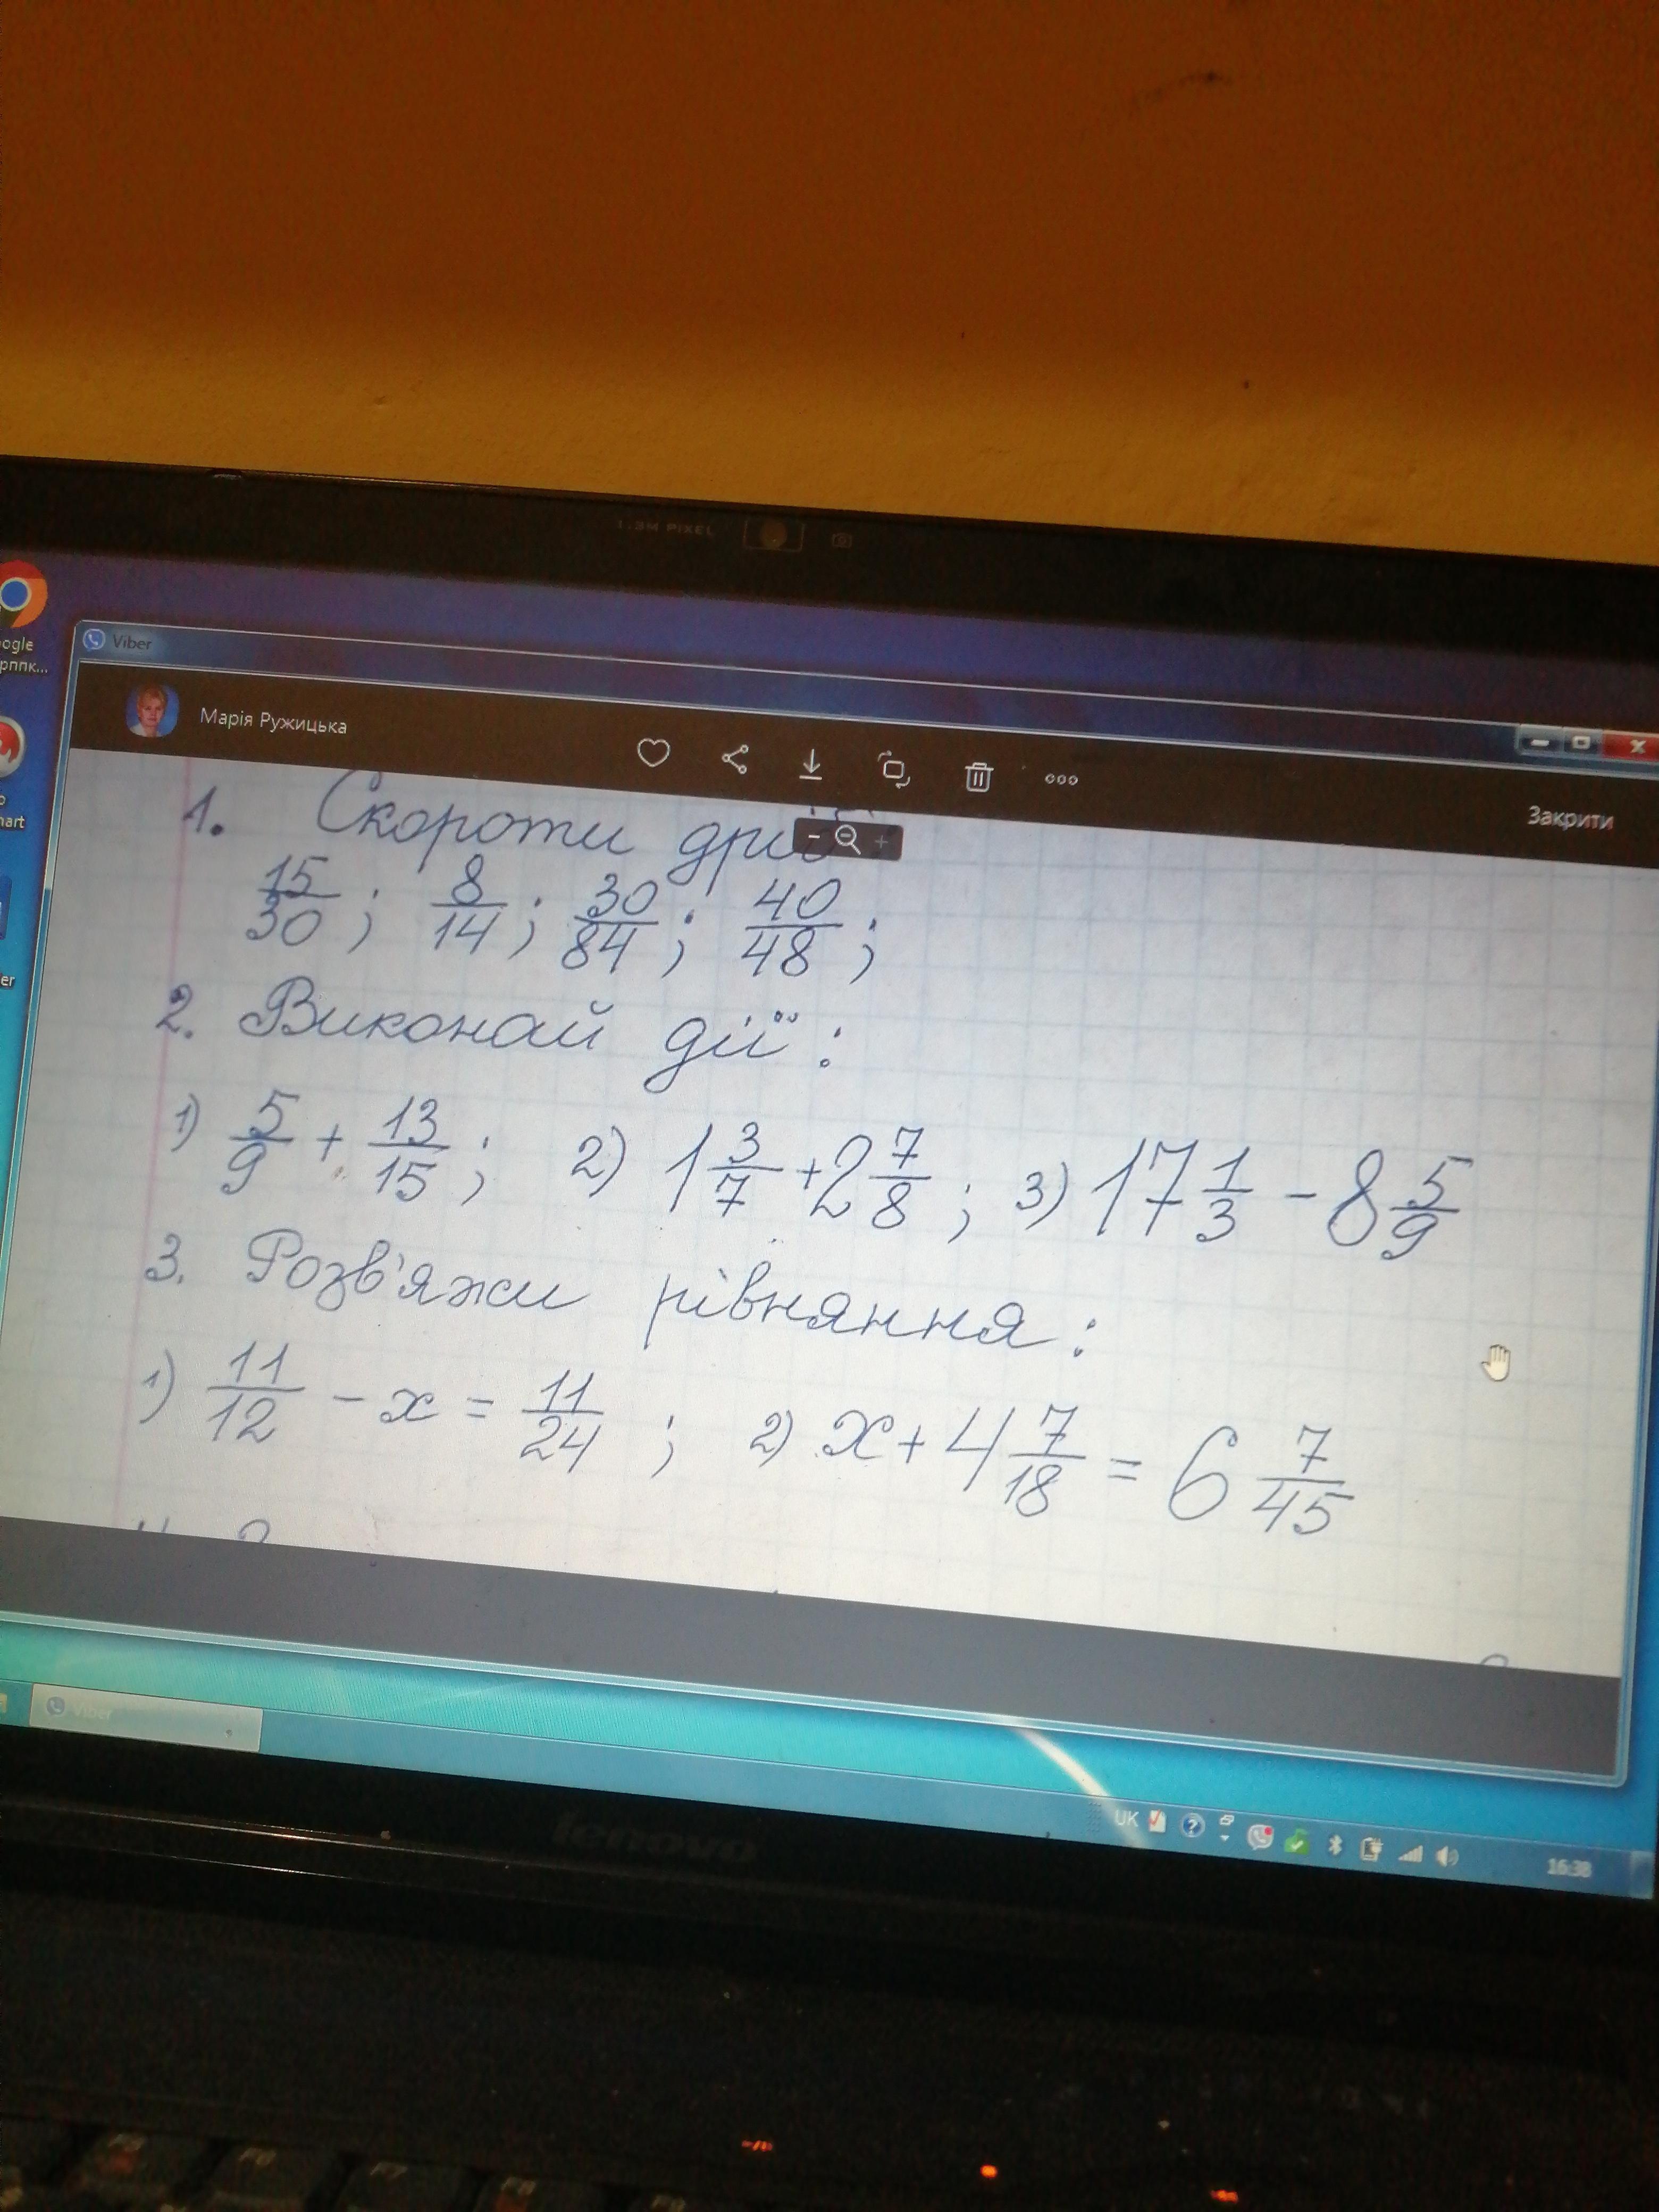 1.3M PIXEL
Viber
Марія Ружицька
Закрити
1. Скороти
15/30 ; 8/14 ; 30/84 ; 40/48 ;
2. Виконай дії :
1) 5/9 + 13/15 ; 2) 1 3/7 + 2 7/8 ; 3) 17 1/3 - 8 5/9
3. Розв'яжи рівняння :
1) 11/12 - x = 11/24 ; 2) x + 4 7/18 = 6 7/45
Viber
UK
16:38
lenovo